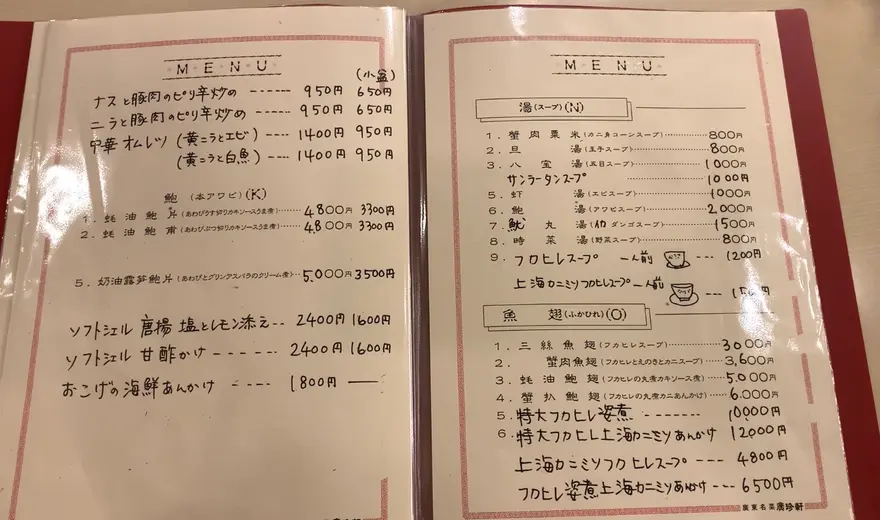 MENU
(小盆)
ナスと豚肉のピリ辛炒め ------ 950円 650円
ニラと豚肉のピリ辛炒め ---- 950円 650円
中華オムレツ (黄ニラとエビ) ---- 1400円 950円
(黄ニラと白魚) ---- 1400円 950円
鮑 (本アワビ) (K)
1. 蚝油鮑片 (あわびうす切りカキソースうま煮) 4.800円 3300円
2. 蚝油鮑甫 (あわびぶつ切りカキソースうま煮) 4.800円 3300円
5. 奶油露笋鮑片 (あわびとグリンアスパラのクリーム煮) 5.000円 3500円
ソフトシェル 唐揚 塩とレモン添え -- 2400円 1600円
ソフトシェル 甘酢かけ ------ 2400円 1600円
おこげの海鮮あんかけ ---- 1800円 ——
MENU
湯 (スープ) (N)
1. 蟹肉粟米 (カニ身コーンスープ) 800円
2. 旦湯 (玉子スープ) 800円
3. 八宝湯 (五目スープ) 1000円
サンラータンスープ 1000円
5. 虾湯 (エビスープ) 1000円
6. 鮑湯 (アワビスープ) 2.000円
7. 魷丸湯 (イカダンゴスープ) 1500円
8. 時菜湯 (野菜スープ) 800円
9. フカヒレスープ 一人前 --- 1200円
上海カニミソフカヒレスープ 一人前 ---
魚翅 (ふかひれ) (O)
1. 三絲魚翅 (フカヒレスープ) 3000円
2. 蟹肉魚翅 (フカヒレとえのきとカニスープ) 3,600円
3. 蚝油鮑翅 (フカヒレの丸煮カキソース煮) 5.000円
4. 蟹扒鮑翅 (フカヒレの丸煮カニあんかけ) 6.000円
5. 特大フカヒレ姿煮 ------- 10000円
6. 特大フカヒレ上海カニミソあんかけ 12000円
上海カニミソフカヒレスープ --- 4800円
フカヒレ姿煮上海カニミソあんかけ --- 6500円
廣東名菜 廣珍軒